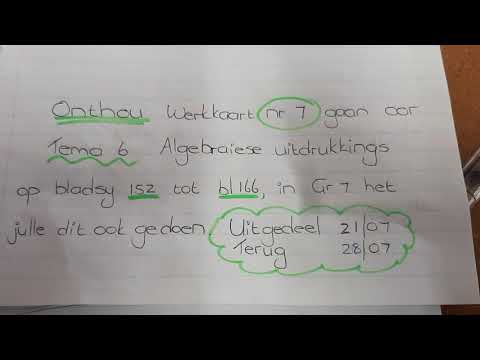 Onthou Werkkaart nr 7 gaan oor
Tema 6 Algebraiese uitdrukkings
op bladsy 152 tot bl 166, in Gr 7 het
julle dit ook gedoen. Uitgedeel 21/07
Terug 28/07